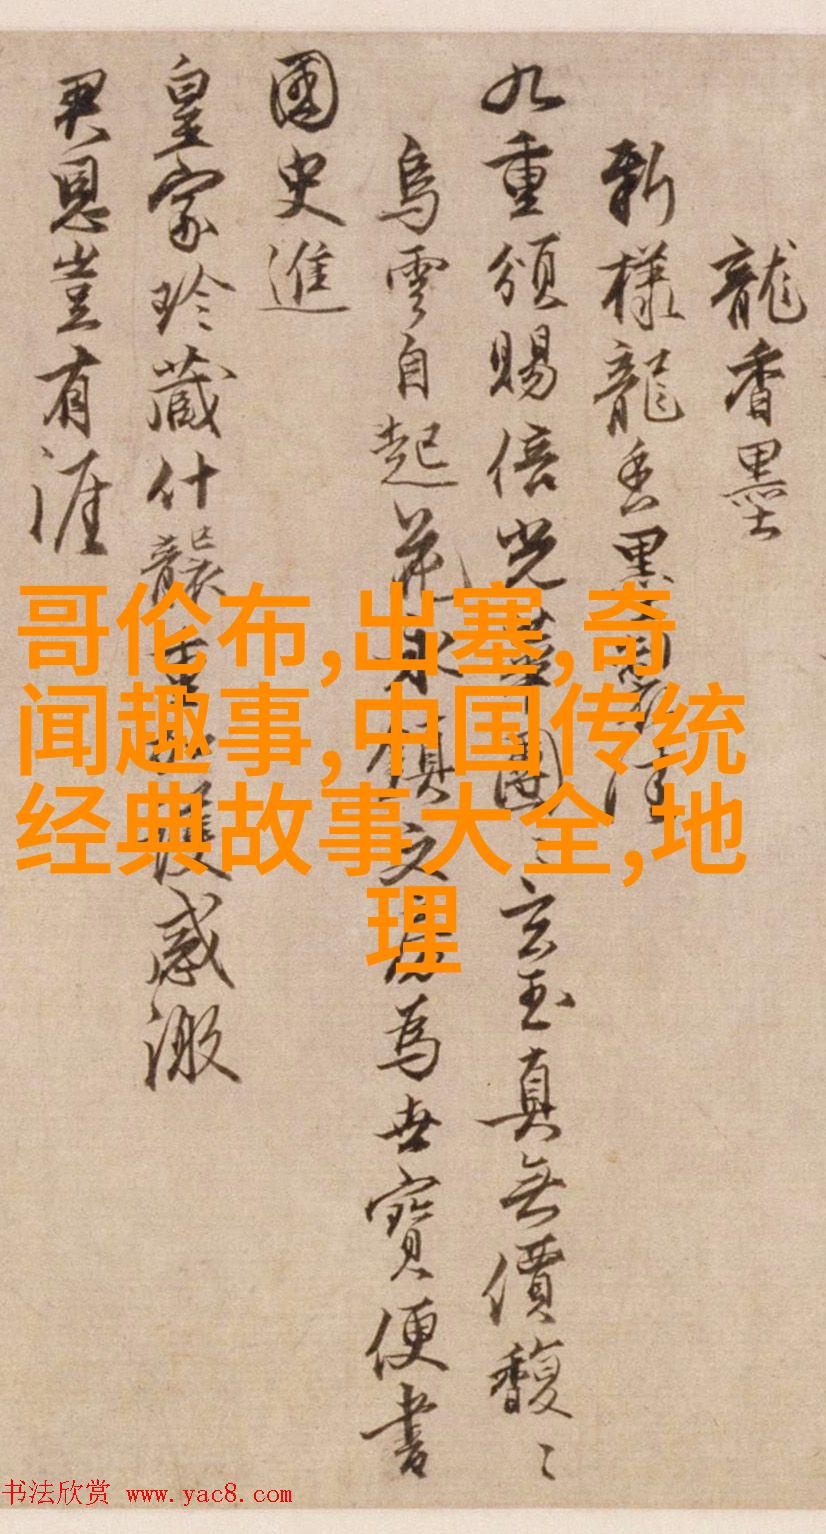 龍香墨
新樣龍香
九重頒賜倍光華圓〻玄玉真無價馥〻
烏雲自起花鎮文房為世寶便書
國史進
皇家珍藏什襲護感激
君恩豈有涯
哥伦布,出塞,奇
闻趣事,中国传统
经典故事大全,地
理
书法欣赏 www.yac8.com